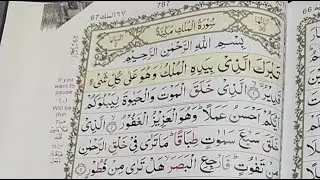 الملك ٦٧
781
67
سُوْرَةُ الْمُلْكِ مَكِّيَّةٌ
بِسْمِ اللّٰهِ الرَّحْمٰنِ الرَّحِيْمِ
تَبٰرَكَ الَّذِيْ بِيَدِهِ الْمُلْكُ وَهُوَ عَلٰى كُلِّ شَيْءٍ
الَّذِيْ خَلَقَ الْمَوْتَ وَالْحَيٰوةَ لِيَبْلُوَكُمْ
اَيُّكُمْ اَحْسَنُ عَمَلًا وَهُوَ الْعَزِيْزُ الْغَفُوْرُ الَّذِيْ
خَلَقَ سَبْعَ سَمٰوٰتٍ طِبَاقًا مَا تَرٰى فِيْ خَلْقِ الرَّحْمٰنِ
مِنْ تَفٰوُتٍ فَارْجِعِ الْبَصَرَ هَلْ تَرٰى مِنْ فُطُوْرٍ
If you
want to
pause
Will be